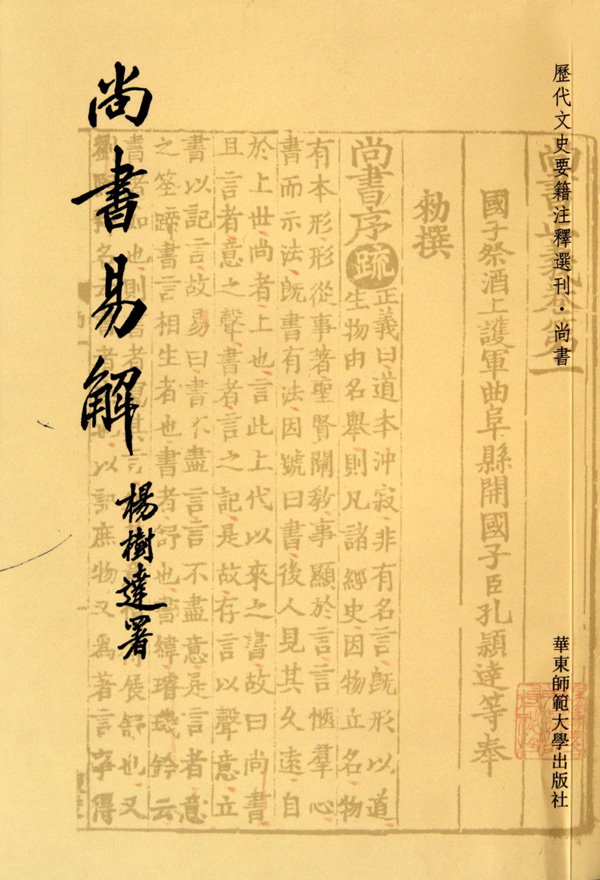 歷代文史要籍注釋選刊·尚書
華東師範大學出版社
尚書正義卷第一
國子祭酒上護軍曲阜縣開國子臣孔穎達等奉
勑撰
尚書序
疏
正義曰道本沖寂非有名言旣形以道
生物由名舉則凡諸經史因物立名物
有本形形從事著聖賢闡敎事顯於言言愜羣心
書而示法旣書有法因號曰書後人見其久遠自
於上世尚者上也言此上代以來之書故曰尚書
且言者意之聲書者言之記是故存言以聲意立
書以記言故易曰書不盡言言不盡意是言者意
之筌蹄書言相生者也書者舒也書緯璿璣鈐云
書者如也則書者寫其言展舒也又
劉名以記庶物又爲著言事得
尚書易解
楊樹達署